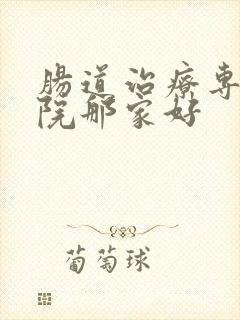 腸道治療専
院那家好
葡萄球